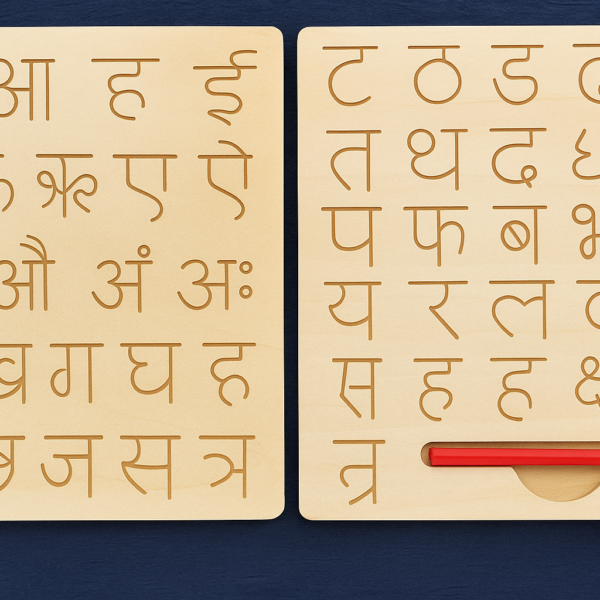 आ ह ई
ऋ ए ऐ
औ अं अः
ग घ ह
ज स ञ
ट ठ ड
त थ द
प फ ब
य र ल
स ह ह
त्र